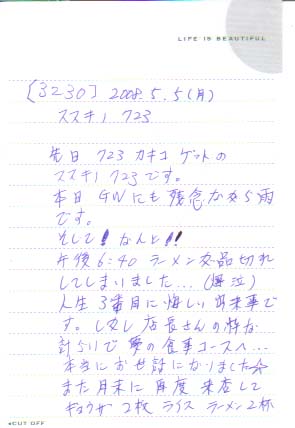 LIFE IS BEAUTIFUL
[3230] 2008.5.5(月)
ススキノ 723
先日 723 カキコ ゲットの
ススキノ 723です。
本日 GWにも 残念ながら雨
です。
そして!なんと!!
午後6:40 ラーメン欠品切れ
してしまいました…(爆泣)
人生3番目に悔しい出来事で
す。しかし店長さんの粋な
計らいで 夢の食事コースへ…
本当にお世話になりました☆
また月末に 再度 来店して
ギョウザ 2枚 ライス ラーメン2杯
CUT OFF